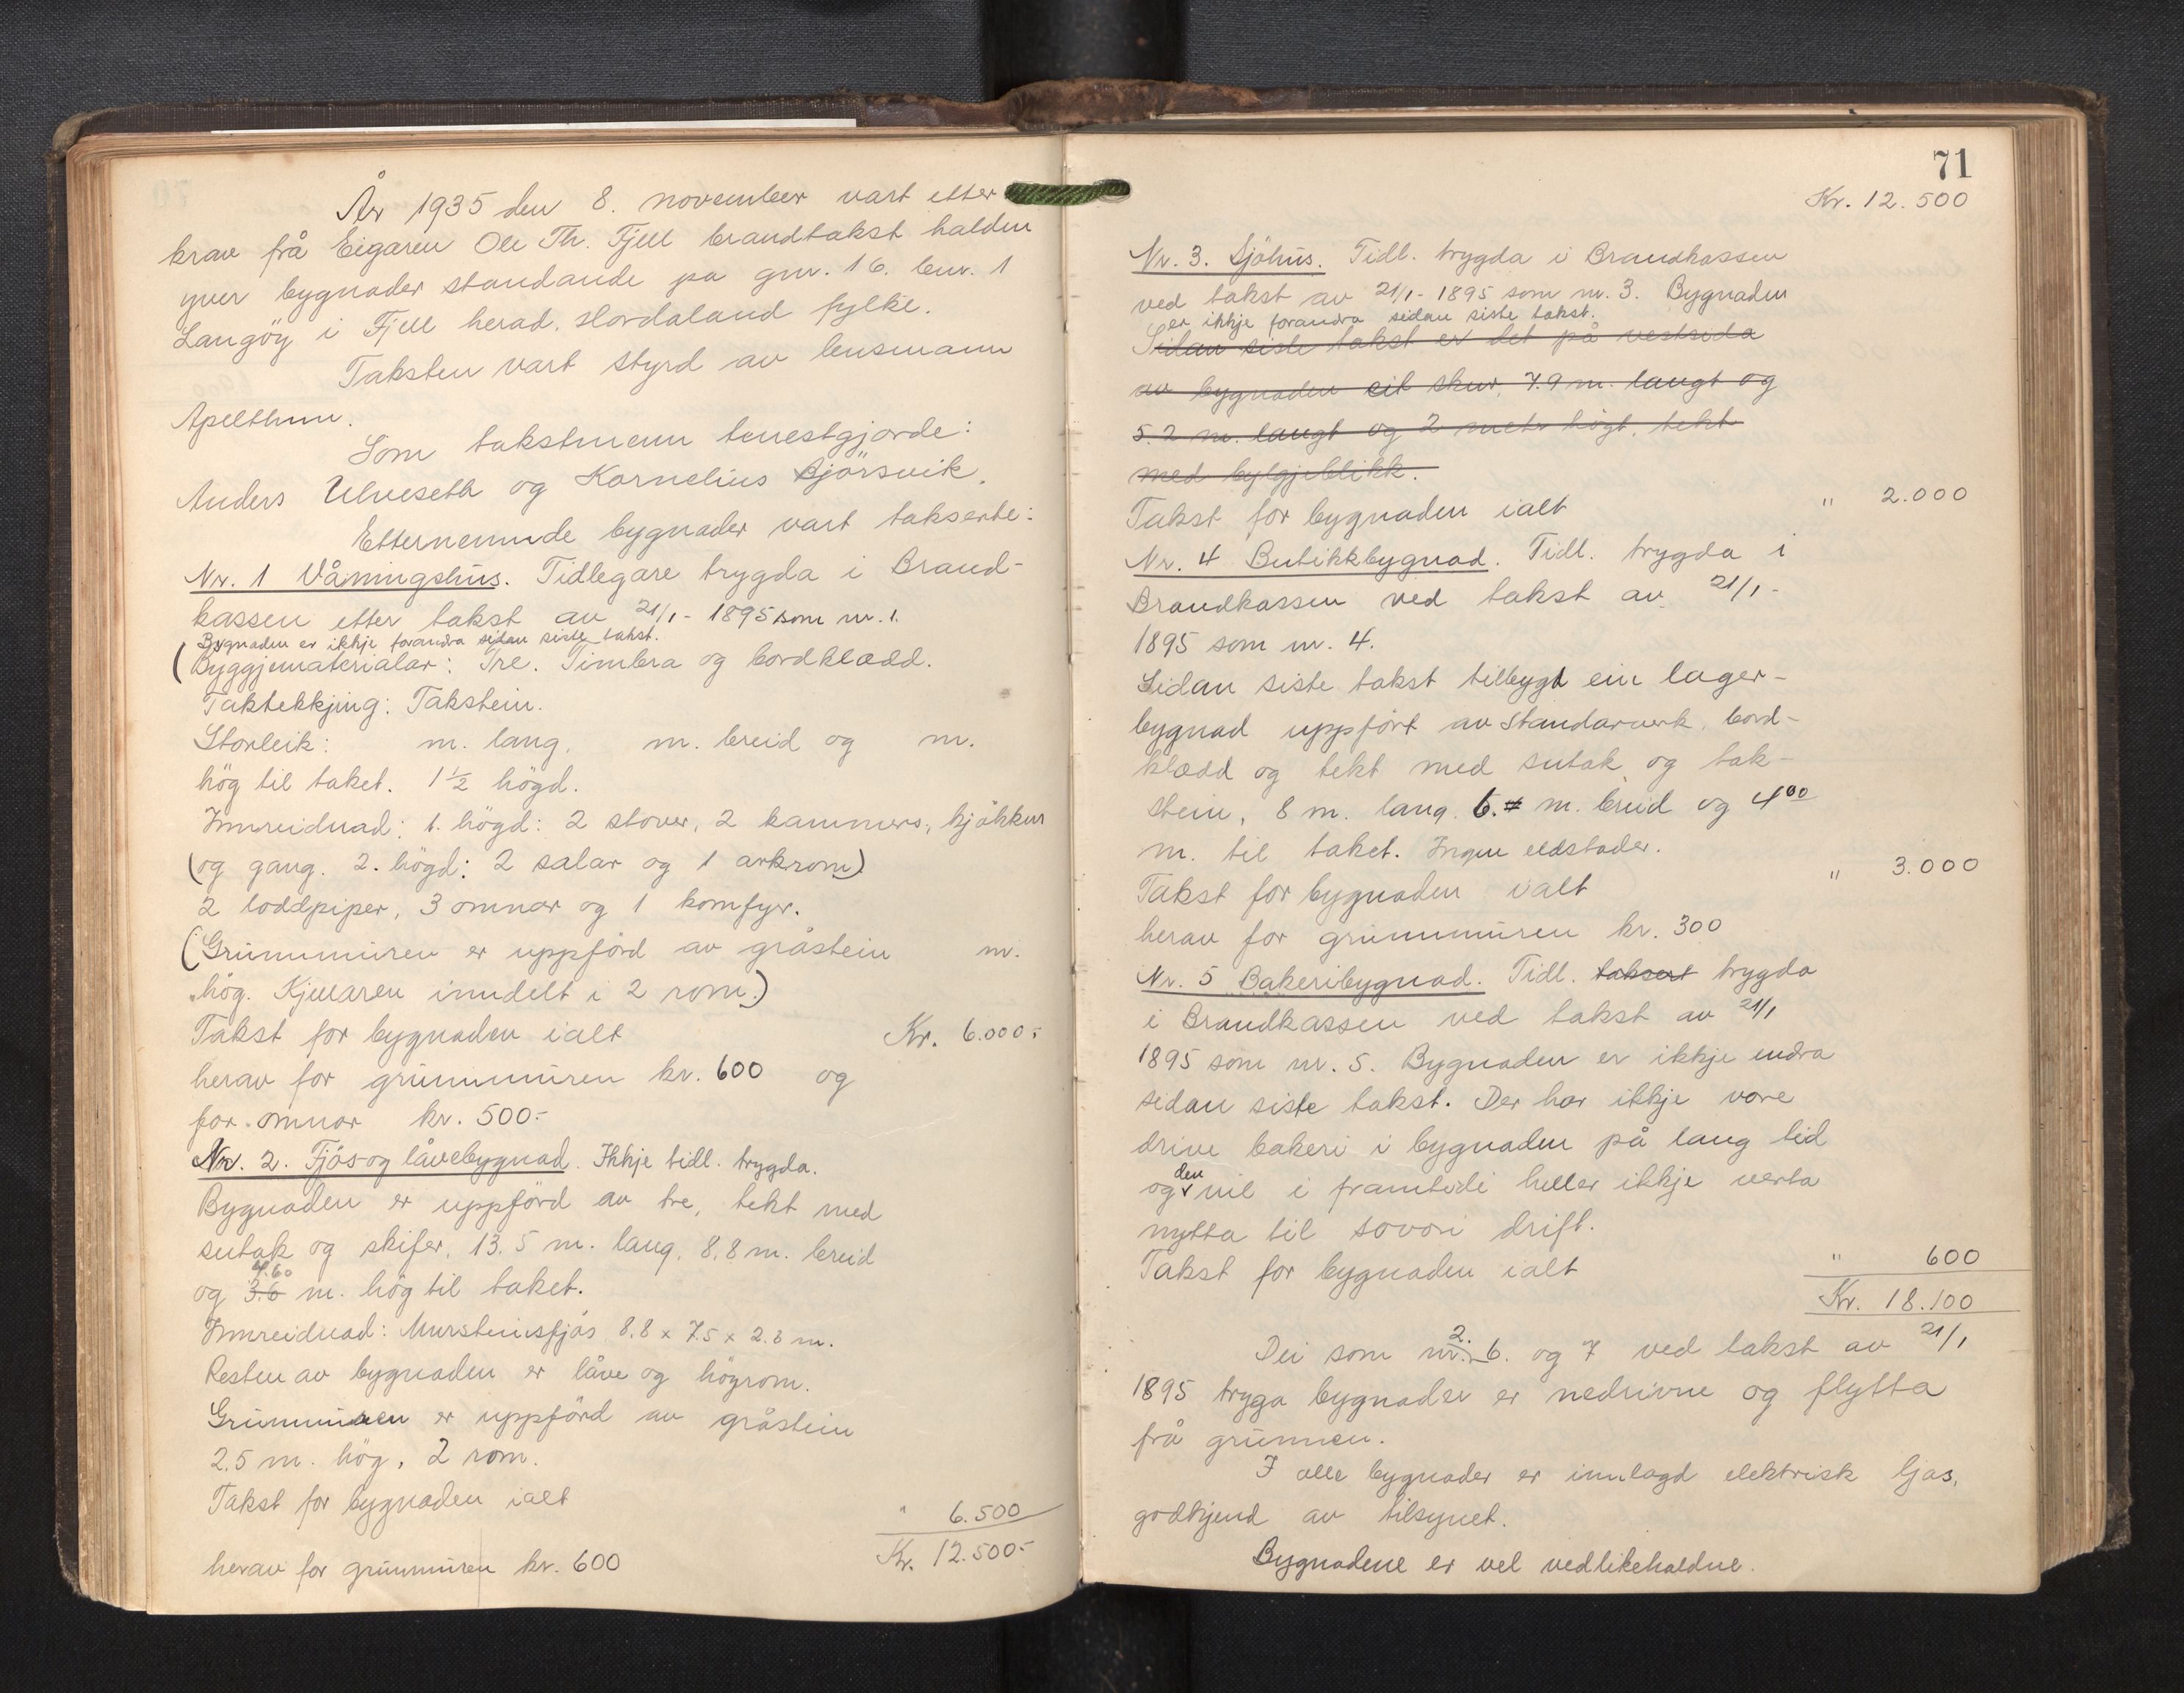 År 1935 den 8. november vart etter
krav frå Eigaren Ole Th. Fjell brandtakst halden
yver bygnader standande pa gnr. 16. bnr. 1
Langöy i Fjell herad. Hordaland fylke.
Taksten vart styrd av lensmann
Apelthun.
Som takstmenn tenestgjorde:
Anders Ulveseth og Kornelius Bjørsvik.
Etternemnde bygnader vart takserte:
Nr. 1 Våningshus. Tidlegare trygda i Brand-
kassen etter takst av 21/1 - 1895 som nr. 1.
Bygnaden er ikkje forandra sidan siste takst.
(Byggjematerialar: Tre. Timbra og bordklædd.
Taktekkjing: Takstein.
Storleik: m. lang, m. breid og m.
hög til taket. 1 1/2 högd.
Innreidnad: 1. högd: 2 stover, 2 kammers, kjökken
(og gang. 2. högd: 2 salar og 1 arkrom)
2 loddpiper, 3 omnar og 1 komfyr.
(Grunnmuren er uppförd av gråstein m.
hög. Kjellaren inndelt i 2 rom.)
Takst for bygnaden ialt Kr. 6.000.-
herav for grunnmuren kr. 600 og
for omnar kr. 500.-
Nr. 2. Fjös- og låvebygnad. Ikkje tidl. trygda.
Bygnaden er uppförd av tre, tekt med
sutak og skifer, 13.5 m. lang, 8.8 m. breid
4.60
og 3.6 m. hög til taket.
Innreidnad: Murstensfjös 8.8 x 7.5 x 2.3 m.
Resten av bygnaden er låve og höyrom.
Grunnmuren er uppförd av gråstein
2.5 m. hög, 2 rom.
Takst for bygnaden ialt " 6.500
Kr. 12.500.-
herav for grunnmuren kr. 600
71
Kr. 12.500
Nr. 3. Sjöhus. Tidl. trygda i Brandkassen
ved takst av 21/1 - 1895 som nr. 3. Bygnaden
er ikkje forandra sidan siste takst.
Sidan siste takst er det på vestsida
av bygnaden eit skur, 7.9 m. langt og
5.2 m. langt og 2 meter högt, tekt
med bylgjeblikk.
Takst for bygnaden ialt " 2.000
Nr. 4 Butikkbygnad. Tidl. trygda i
Brandkassen ved takst av 21/1 -
1895 som nr. 4.
Sidan siste takst tilbygt ein lager-
bygnad uppfört av standarverk, bord-
klædd og tekt med sutak og tak-
stein, 8 m. lang 6. m. breid og 4.00
m. til taket. Ingen eldstader.
Takst for bygnaden ialt " 3.000
herav for grunnmuren kr. 300
Nr. 5 Bakeribygnad. Tidl. taksert trygda
i Brandkassen ved takst av 21/1
1895 som nr. 5. Bygnaden er ikkje endra
sidan siste takst. Der har ikkje vore
drive bakeri i bygnaden på lang tid
den
og vil i framtidi heller ikkje verta
nytta til sovori drift.
Takst for bygnaden ialt " 600
Kr. 18.100
2.
Dei som nr. 6. og 7 ved takst av 21/1
1895 tryga bygnader er nedrivne og flytta
frå grunnen.
I alle bygnader er innlagd elektrisk ljos,
godkjend av tilsynet.
Bygnadene er vel vedlikehaldne.